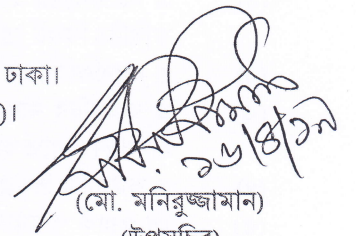 ঢাকা।
)।
১৬/৪/১৭
(মো. মনিরুজ্জামান)
(উপসচিব)